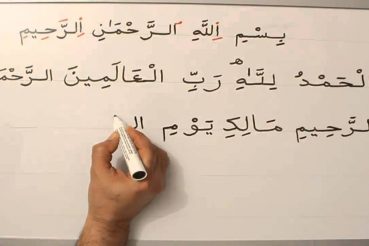 بِسْمِ اللَّهِ الرَّحْمَٰنِ الرَّحِيمِ
لْحَمْدُ لِلَّهِ رَبِّ الْعَالَمِينَ الرَّحْمَ
الرَّحِيمِ مَالِكِ يَوْمِ ال